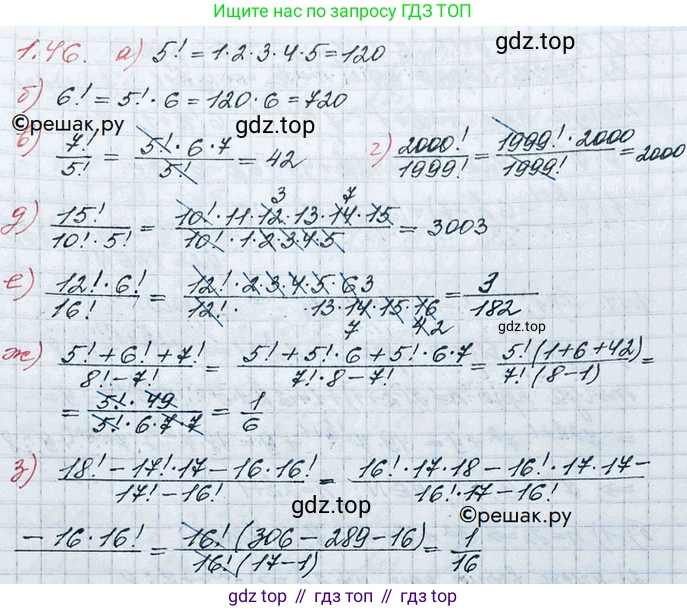 Ищите нас по запросу ГДЗ ТОП
1.46. а) 5! = 1·2·3·4·5 = 120
гдз top
б) 6! = 5!·6 = 120·6 = 720
©решак.ру
гдз top
в) 7!/5! = 5!·6·7/5! = 42 г) 2000!/1999! = 1999!·2000/1999! = 2000
д) 15!/10!·5! = 10!·11·12·13·14·15/10!·1·2·3·4·5 = 3003
3 7
е) 12!·6!/16! = 12!·2·3·4·5·6 3/12!· 13·14·15·16 = 3/182
7 4 2
гдз top
ж) 5!+6!+7!/8!-7! = 5!+5!·6+5!·6·7/7!·8-7! = 5!(1+6+42)/7!(8-1) =
= 5!·49/5!·6·7·7 = 1/6
з) 18!-17!·17-16·16!/17!-16! = 16!·17·18-16!·17·17-/16!·17-16!
гдз top
©решак.ру
-16·16!/ = 16!(306-289-16)/16!(17-1) = 1/16
гдз top || гдз топ || гдз top